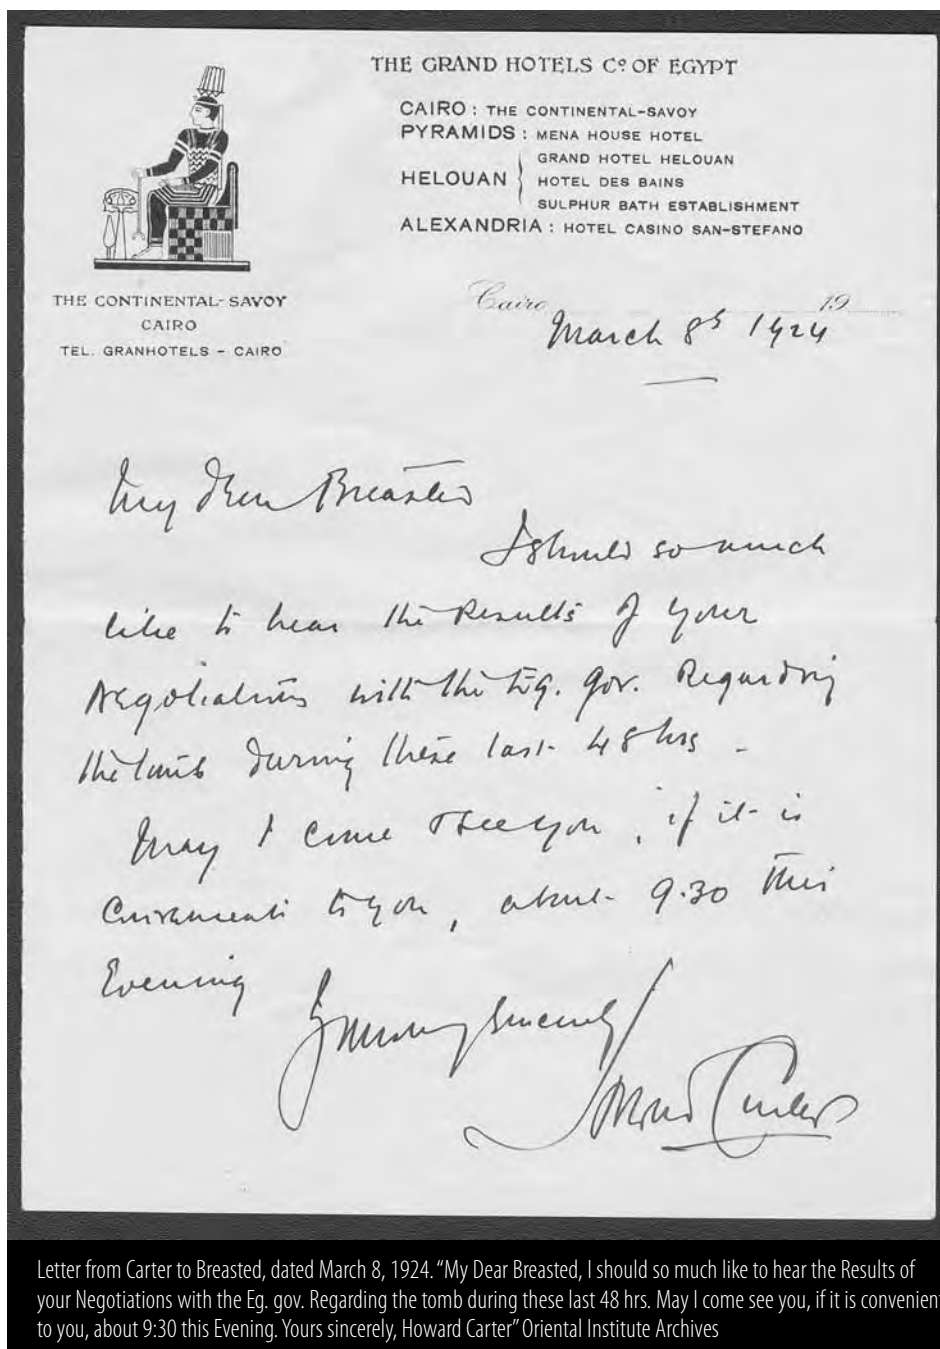 THE GRAND HOTELS Cº OF EGYPT
CAIRO : THE CONTINENTAL-SAVOY
PYRAMIDS : MENA HOUSE HOTEL
HELOUAN { GRAND HOTEL HELOUAN
HOTEL DES BAINS
SULPHUR BATH ESTABLISHMENT
ALEXANDRIA : HOTEL CASINO SAN-STEFANO
THE CONTINENTAL-SAVOY
CAIRO
TEL. GRANHOTELS - CAIRO
Cairo 19
March 8th 1924
My Dear Breasted
I should so much
like to hear the Results of your
Negotiations with the Eg. gov. Regarding
the tomb during these last 48 hrs -
May I come & see you, if it is
Convenient to you, about 9.30 this
Evening
Yours very sincerely
Howard Carter
Letter from Carter to Breasted, dated March 8, 1924. “My Dear Breasted, I should so much like to hear the Results of
your Negotiations with the Eg. gov. Regarding the tomb during these last 48 hrs. May I come see you, if it is convenien
to you, about 9:30 this Evening. Yours sincerely, Howard Carter” Oriental Institute Archives